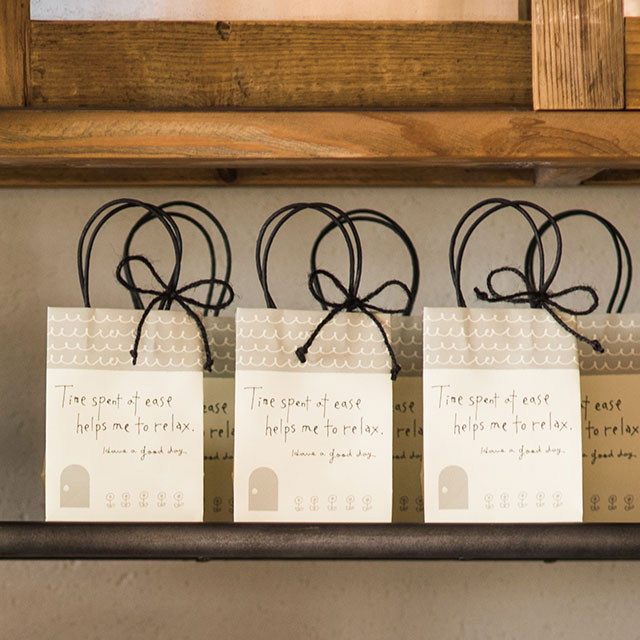 Time spent at ease
helps me to relax.
Have a good day.
Time spent at ease
helps me to relax.
Have a good day.
Time spent at ease
helps me to relax.
Have a good day.
ease
to relax.
good day.